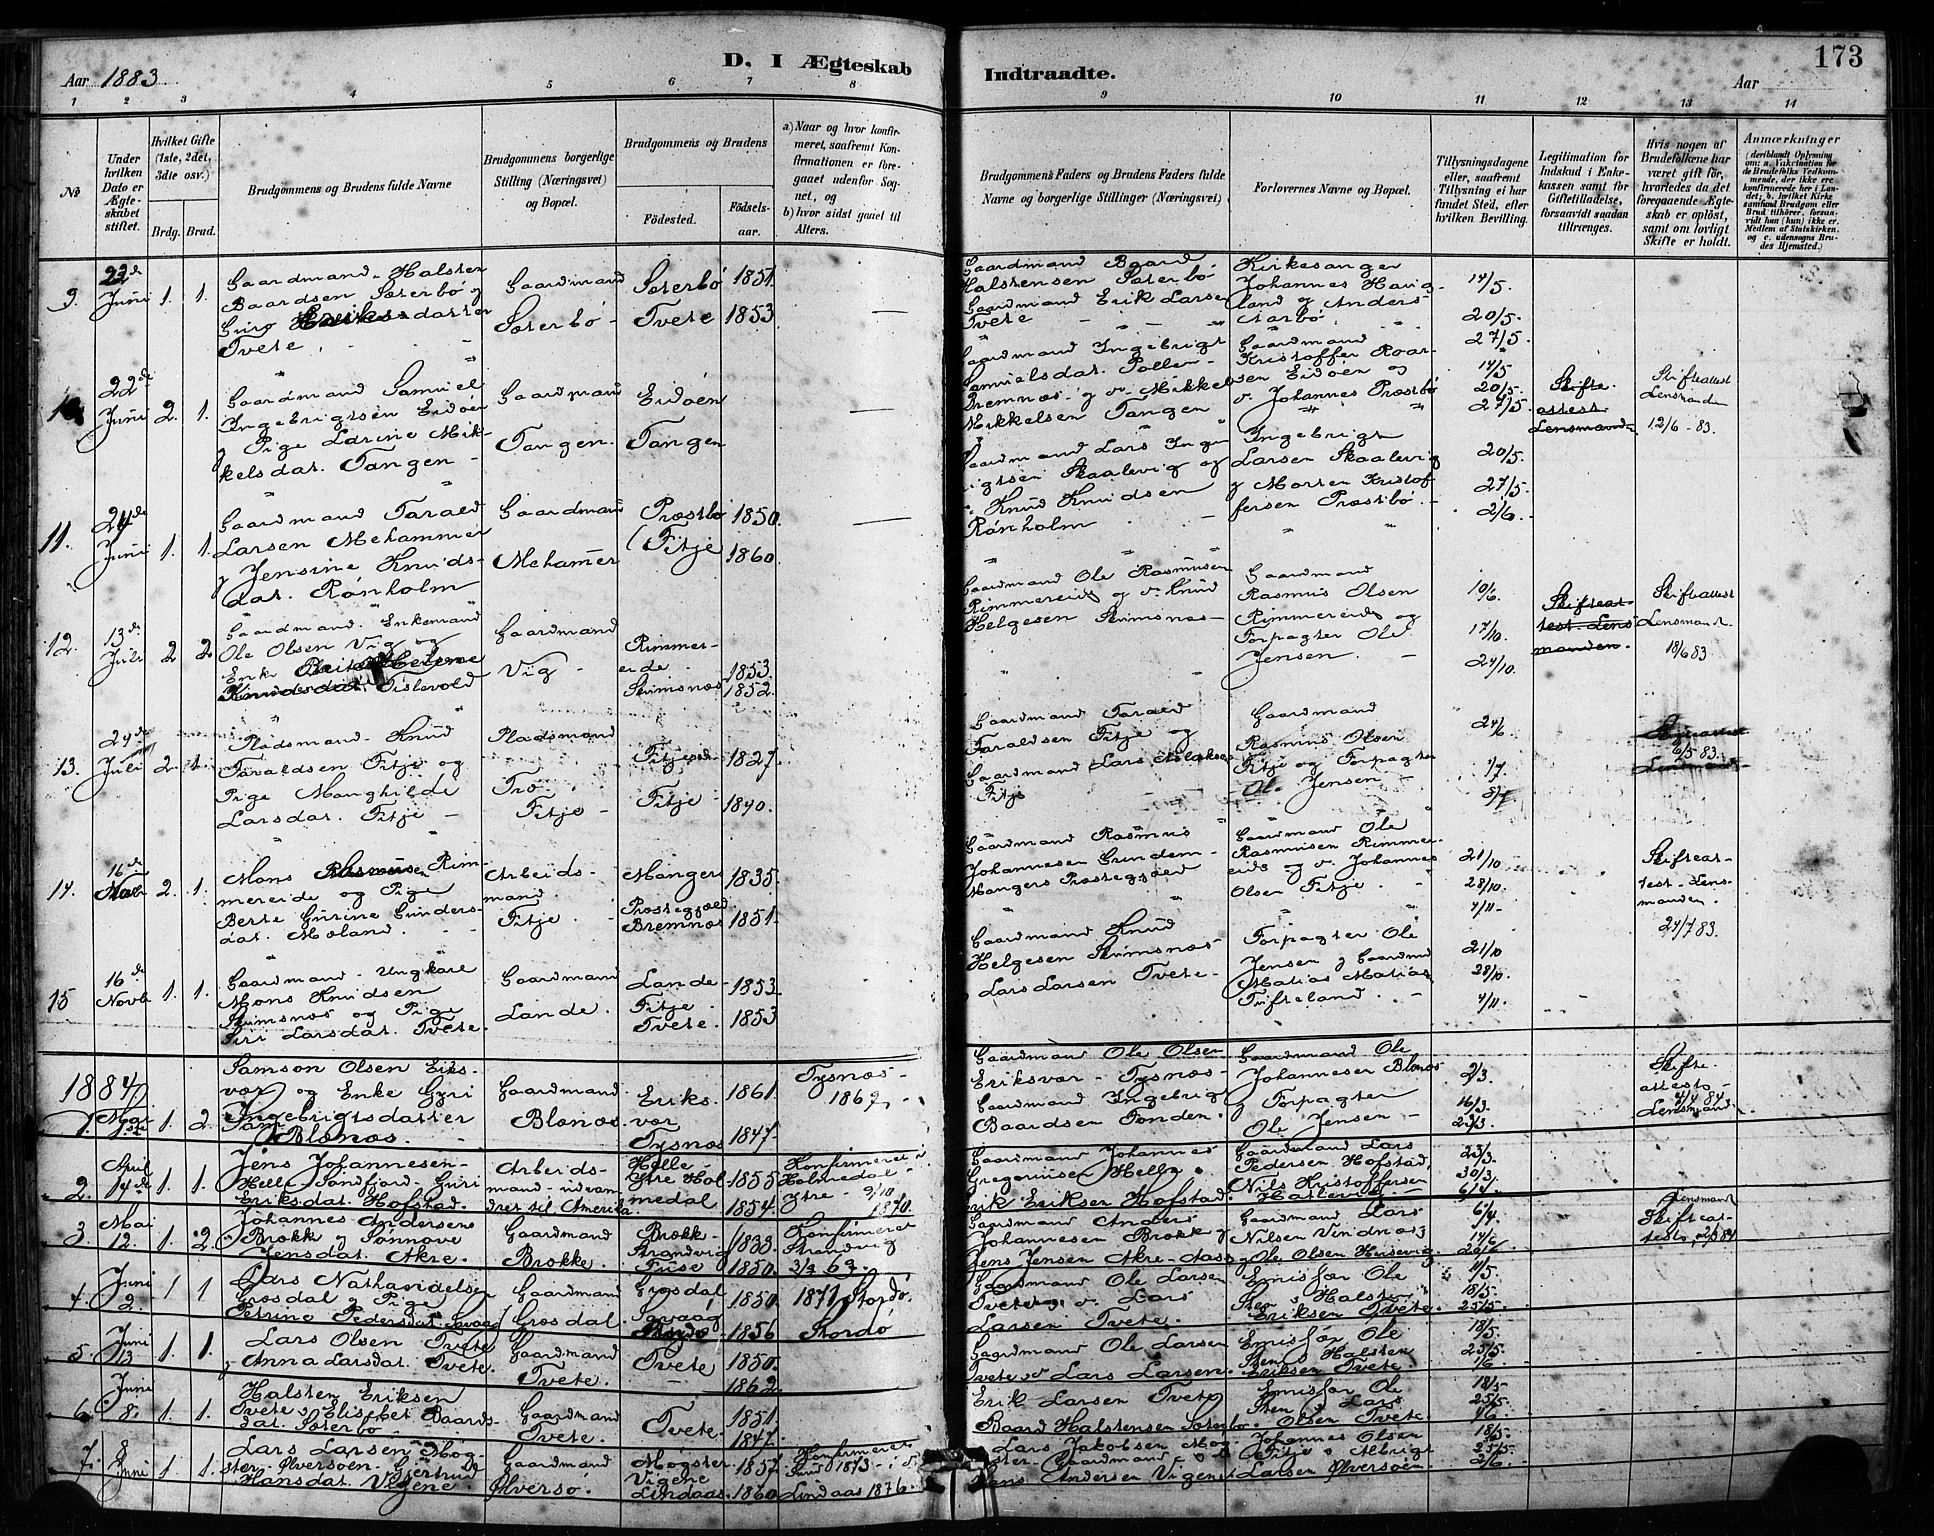 Aar 1883
D. I Ægteskab
Indtraadte.
Aar
173
1 2 3 4 5 6 7 8 9 10 11 12 13 14
No
Under hvilken Dato er Ægteskabet stiftet.
Hvilket Gifte (1ste, 2det, 3die osv.)
Brdg. Brud.
Brudgommens og Brudens fulde Navne
Brudgommens borgerlige Stilling (Næringsvei) og Bopæl.
Brudgommens og Brudens
Fødested.
Fødselsaar.
a) Naar og hvor konfirmeret, saafremt Konfirmationen er foregaaet udenfor Sognet, og
b) hvor sidst gaaet til Alters.
Brudgommens Faders og Brudens Faders fulde Navne og borgerlige Stillinger (Næringsvei)
Forlovernes Navne og Bopæl.
Tillysningsdagene eller, saafremt Tillysning ei har fundet Sted, efter hvilken Bevilling.
Legitimation for Indskud i Enkekassen samt for Giftetilladelse, forsaavidt saadan tiltrænges.
Hvis nogen af Brudefolkene har været gift før, hvorledes da det foregaaende Ægteskab er opløst, samt om lovligt Skifte er holdt.
Anmærkninger
(deriblandt Oplysning om: a. Vakcination for de Brudefolks Vedkommende, der ikke ere konfirmerede her i Landet; b. hvilket Kirkesamfund Brudgom eller Brud tilhører, forsaavidt han (hun) ikke er Medlem af Statskirken, og c. udensogns Brudes Hjemsted.)
9. 22de Juni 1. 1.
Gaardmand Halsten
Baardsen Sæterbø og
Guro
datter
Tvete
Gaardmand
Sæterbø
Sæterbø 1851
Tvete 1853
Gaardmand Baard
Halstensen Sæterbø
Gaardmand Erik Larsen
Tvete
Kirkesanger
Johannes Haug-
land og Anders
14/5.
20/5.
27/5.
22de Juni 2. 1.
Gaardmand Samuel
Ingebrigtsen Eidøen
og Pige Larine Mik-
kelsdat. Tangen
Gaardmand
Tangen
Eidøen
Tangen
Gaardmand Ingebrigt
Samuelsdat.
Bremnæs og v. Mikkel
Mikkelsen Tangen
Gaardmand
Kristoffer Roar-
sen Eidøen og
v. Johannes Præstbø
14/5
20/5.
27/5.
Skifte
attest
Lensmanden
Skifteattest
Lensmanden
12/6-83.
11. 24de Juni 1. 1.
Gaardmand Tarald
Larsen Mehammer
og Jensine Knuds-
dat. Rønholm
Gaardmand
Mehamer
Præstbø 1850.
Fitje 1860
Gaardmand Lars Inge
brigtsen Skaalevig og
Knud Knudsen
Rønholm
Ingebrigt
Larsen Skaalevig
og Morten Kristof
fersen Præstbø.
20/5.
27/5.
2/6.
12. 13de Juli 2 2.
Gaardmand Enkemand
Ole Olsen Vig og
Enke
Tislevold
Gaardmand
Vig
Rimmer-
eide 1853.
Skimsnæs 1852.
Gaardmand Ole Rasmusen
Rimmereide og v. Knud
Helgesen Skimsnæs
Gaardmand
Rasmus Olsen
Rimmereide og
Forpagter Ole
Jensen.
10/6.
17/10.
24/10.
Skifteat-
test Lens
manden.
Skifteattest
Lensmand.
18/6 83.
13. 24de Juli 2. 1.
Pladsmand Knud
Taraldsen Fitje og
Pige Manghilde
Larsdat. Fitje
Pladsmand
Trø
Fitje
1827.
Fitje 1840.
Gaardmand Tarald
Taraldsen Fitje og
Gaardmand Lars
Fitje
Gaardmand
Rasmus Olsen
Fitje og Forpagter
Ole Jensen
24/6
1/7.
8/7
6/5 83.
14. 16de 2. 1.
Mons Rasmusen Rim-
mereide og Pige
Berte Gurine Gunders-
dat. Moland.
Arbeids-
mand.
Fitje.
Manger 1835.
Præstegjæld
Bremnæs 1851.
Gaardmand Rasmus
Johannesen
Mangers Præstegjæld
Gaardmand Ole
Rasmusen Rimmer-
eide og v. Johannes
Olsen Fitje.
21/10
28/10.
4/11-
Skifteat-
test. Lens-
manden.
24/7 83.
15 16de Novb 1. 1.
Gaardmand Ungkare
Mons Knudsen
Skimsnæs og Pige
Siri Larsdat. Tvete.
Gaardmand
Lande.
Lande 1853
Fitje
Tvete. 1853
Gaardmand Knud
Helgesen Skimsnæs
Lars Larsen Tvete.
Forpagter Ole
Jensen og Gaardmd
Matias Matias
Tufteland.
21/10
28/10.
4/11.
1884
1. 1. 2.
Samson Olsen Eriks-
vær og Enke Guri
Ingebrigtsdatter
Blænæs.
Gaardmand
Blænæs.
Eriks- 1861
vær
Tysnæs 1847.
Tysnæs
186
Gaardmand Ole Olsen
Eriksvær - Tysnæs
Gaardmand Ingebrigt
Baardsen Tonden.
Gaardmand Ole
Johannesen Blænæs
Forpagter
Ole Jensen
2/3
16/3.
23/3.
Skifte-
attest
Lensmand
2. April 14de 1. 1.
Jens Johannesen
Helle Søndfjord Guri
Eriksdat. Hofstad.
Arbeids-
mand - udvan-
dret til Amerika
Helle
Ytre Hol 1855
medal 1854.
Konfirmeret i
Holmedal
ytre 9/10
1870.
Gaardmand Johannes
Helle
Erik Eriksen Hofstad.
Gaardmand Lars
Pedersen Hofstad,
Nils Kristoffersen
23/3.
30/3.
6/4.
3. Mai 12. 1. 2.
Johannes Andersen
Brekk og Sønnøve
Jensdat. Akre.
Gaardmand
Brekke.
Brekk
Strandvig 1833.
Fuse 1850.
Konfirmeret
Strandvig
Gaardmand Anders
Johannesen Brekk og
Jens Jensen Akre
Gaardmand Lars
Nilsen Vindnæs
og Ole Olsen Husevig
6/4
14/6
20/6
Lensmand
Skifteat-
test
4. Juni 2. 1 1
Lars Nathanaelsen
Grosdal og Pige
Petrine Pedersdat.
Gaardmand
Grosdal.
Grosdal 1850.
1856
1871 Stordø.
Stordø
Gaardmand Ole Larsen
Tvete og v. Lars
Larsen Tvete.
Ole
Sten Halsten
Eriksen Tvete.
11/5
18/5.
25/5.
5. Juni 13 1. 1.
Lars Olsen Tvete
og Anna Larsdat. Tvete.
Gaardmand
Tvete.
Tvete 1850.
1862.
Gaardmand Ole Larsen
Tvete v Lars Larsen
Ole
Sten Halsten
Eriksen Tvete.
18/5.
25/5
1/6
6. Juni 8. 1. 1.
Halsten Eriksen
Tvete Elisebet Baards
dat. Sæterbø
Gaardmand
Tvete.
Tvete. 1851.
1847.
Erik Larsen Tvete
Baard Halstensen Sæterbø.
Ole
Sten Lars
Olsen Tvete.
18/5
25/5.
7. 8 Juni 1. 1.
Lars Larsen Møg-
ster Ølversøen. Gjertrud
Hansdat. Vigene
Gaardmand
Ølversø.
Møgster 1857.
Vigene
Lindaas. 1860
Konfirmeret
1873
Lindaas 1876.
Lars Jakobsen Møg-
ster Gaardmand
Hans Andersen Vigene
Johannes Olsen
Fitje Albrigt
Larsen Ølversøen.
18/5
25/5.
2/6.